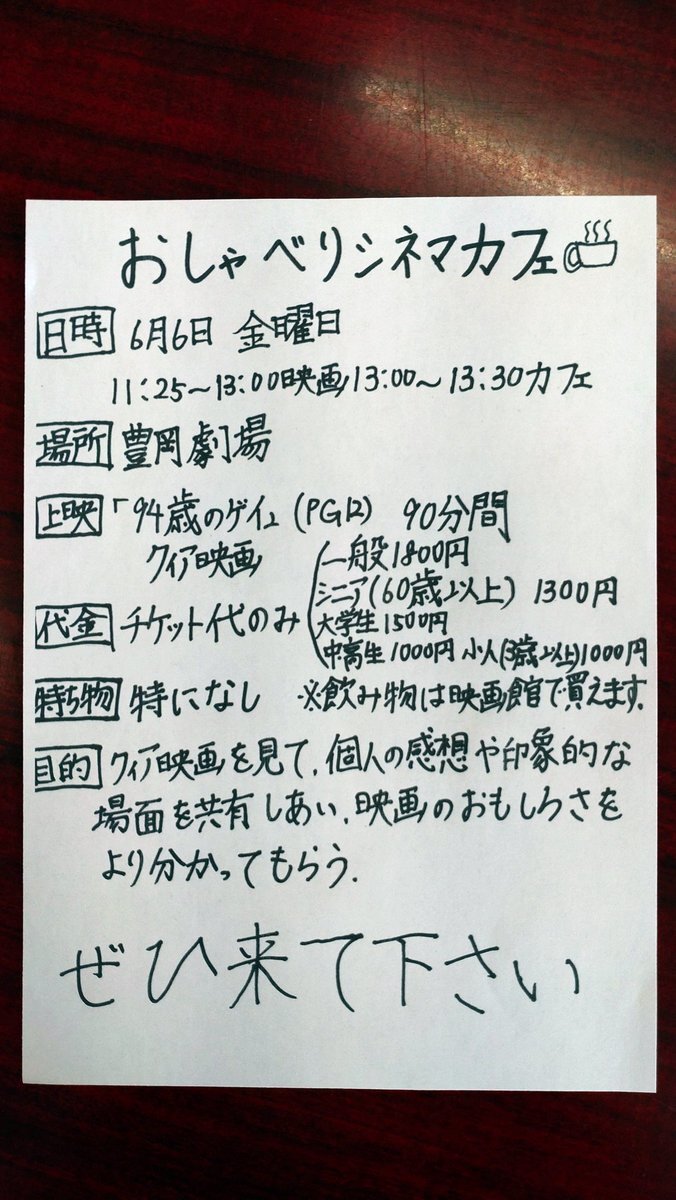 おしゃべりシネマカフェ
日時 6月6日 金曜日
11:25~13:00映画13:00~13:30カフェ
場所 豊岡劇場
上映 「94歳のゲイ」(PG12) 90分間
クィア映画
代金 チケット代のみ
一般1800円
シニア(60歳以上) 1300円
大学生1500円
中高生1000円 小人(3歳以上)1000円
持ち物 特になし ※飲み物は映画館で買えます.
目的 クィア映画を見て、個人の感想や印象的な
場面を共有しあい、映画のおもしろさを
より分かってもらう.
ぜひ来て下さい